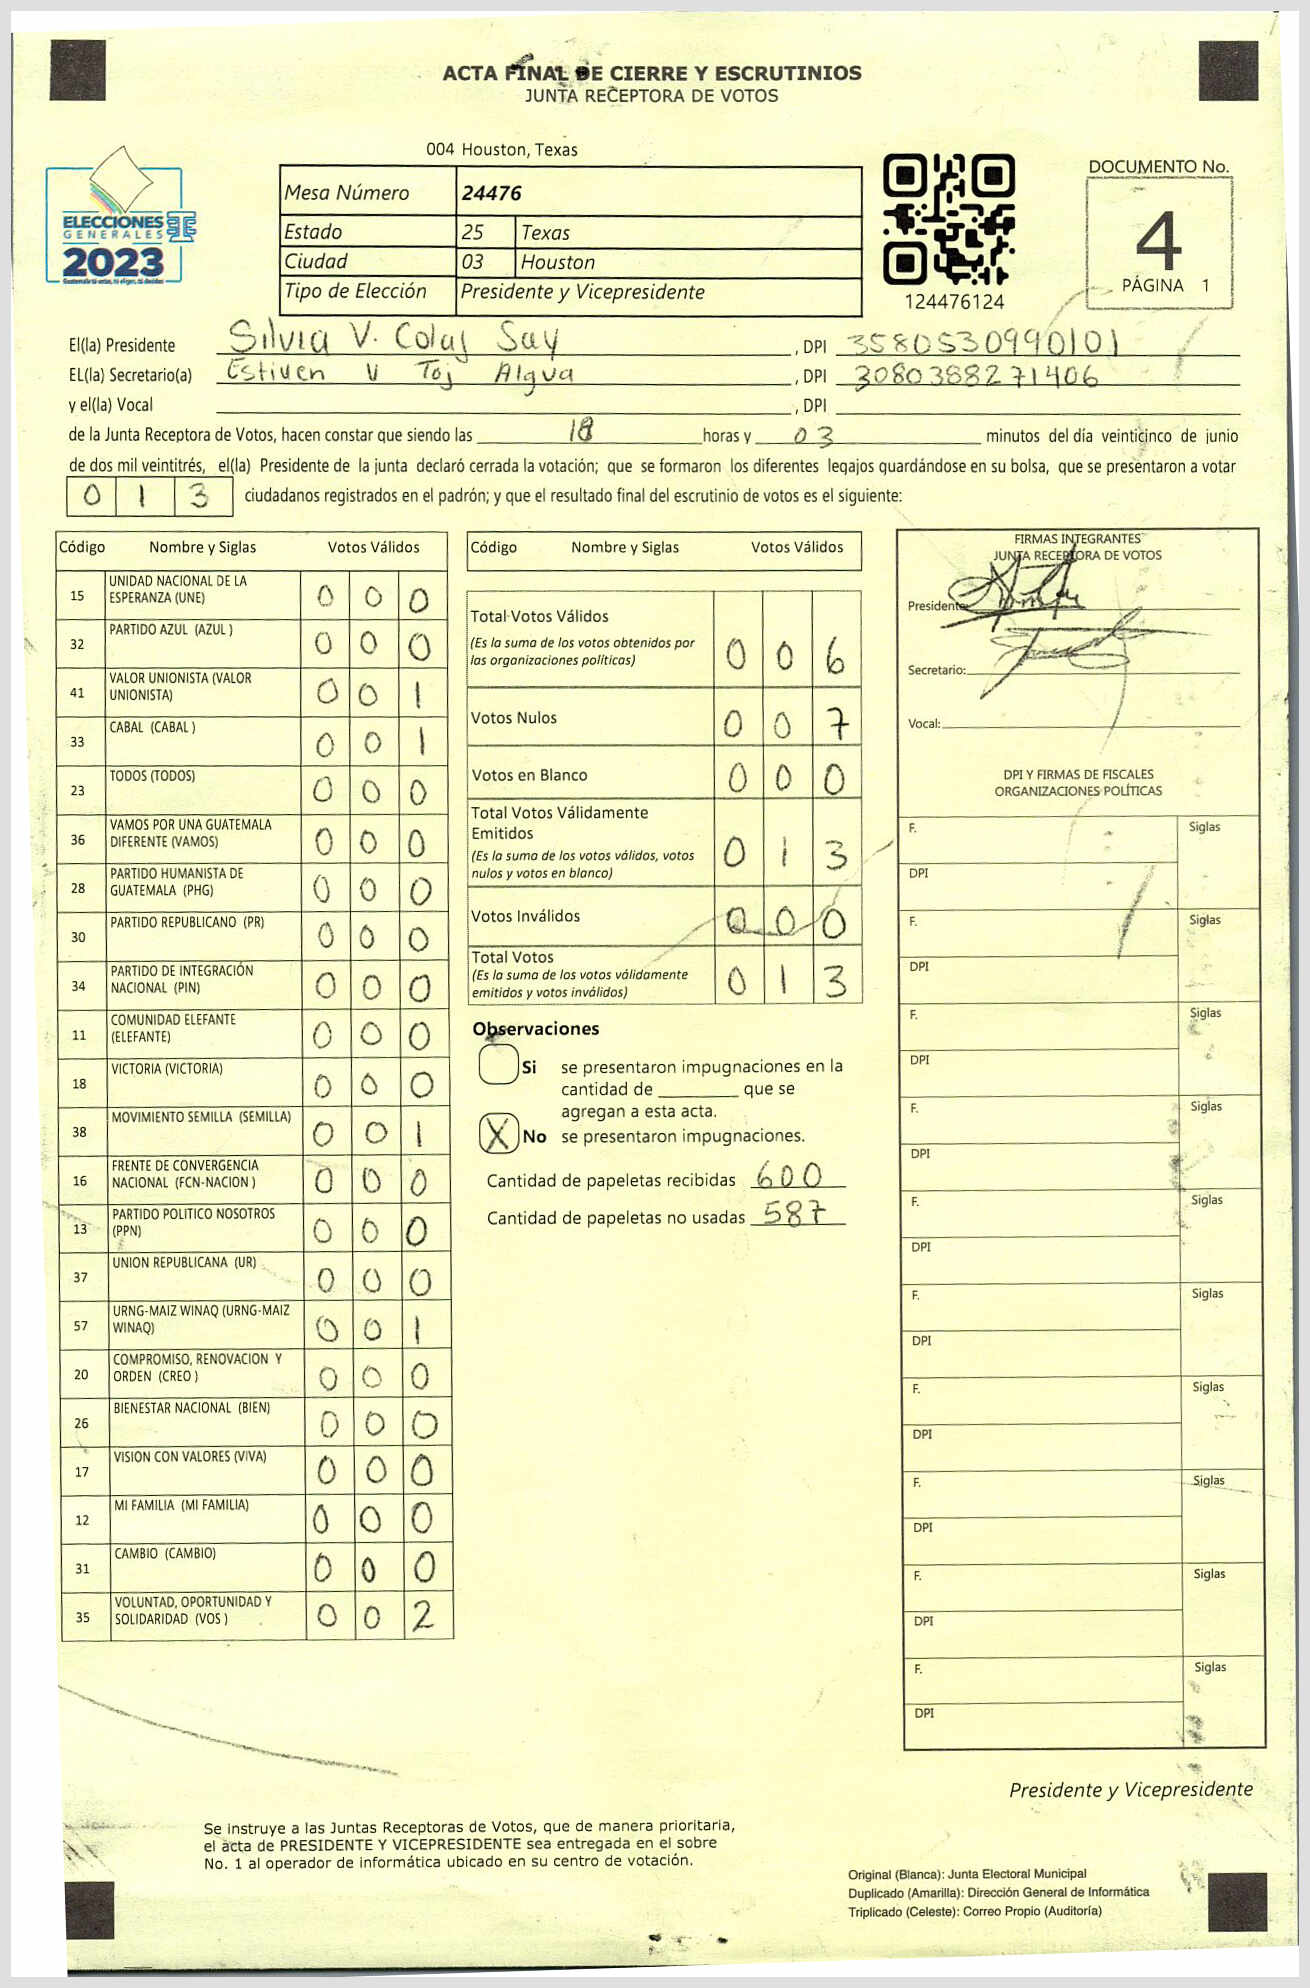 ACTA FINAL DE CIERRE Y ESCRUTINIOS
JUNTA RECEPTORA DE VOTOS
004 Houston, Texas
ELECCIONES
GENERALES
2023
Mesa Número 24476
Estado 25 Texas
Ciudad 03 Houston
Tipo de Elección Presidente y Vicepresidente
124476124
DOCUMENTO No.
4
PÁGINA 1
El(la) Presidente Silvia V. Colaj Say, DPI 3580530990101
EL(la) Secretario(a) Estiven V Toj Algua, DPI 3080388271406
y el(la) Vocal , DPI
de la Junta Receptora de Votos, hacen constar que siendo las 18 horas y 03 minutos del día veinticinco de junio
de dos mil veintitrés, el(la) Presidente de la junta declaró cerrada la votación; que se formaron los diferentes legajos guardándose en su bolsa, que se presentaron a votar
0 1 3 ciudadanos registrados en el padrón; y que el resultado final del escrutinio de votos es el siguiente:
Código Nombre y Siglas Votos Válidos
15 UNIDAD NACIONAL DE LA ESPERANZA (UNE) 0 0 0
32 PARTIDO AZUL (AZUL ) 0 0 0
41 VALOR UNIONISTA (VALOR UNIONISTA) 0 0 1
33 CABAL (CABAL ) 0 0 1
23 TODOS (TODOS) 0 0 0
36 VAMOS POR UNA GUATEMALA DIFERENTE (VAMOS) 0 0 0
28 PARTIDO HUMANISTA DE GUATEMALA (PHG) 0 0 0
30 PARTIDO REPUBLICANO (PR) 0 0 0
34 PARTIDO DE INTEGRACIÓN NACIONAL (PIN) 0 0 0
11 COMUNIDAD ELEFANTE (ELEFANTE) 0 0 0
18 VICTORIA (VICTORIA) 0 0 0
38 MOVIMIENTO SEMILLA (SEMILLA) 0 0 1
16 FRENTE DE CONVERGENCIA NACIONAL (FCN-NACION ) 0 0 0
13 PARTIDO POLITICO NOSOTROS (PPN) 0 0 0
37 UNION REPUBLICANA (UR) 0 0 0
57 URNG-MAIZ WINAQ (URNG-MAIZ WINAQ) 0 0 1
20 COMPROMISO, RENOVACION Y ORDEN (CREO ) 0 0 0
26 BIENESTAR NACIONAL (BIEN) 0 0 0
17 VISION CON VALORES (VIVA) 0 0 0
12 MI FAMILIA (MI FAMILIA) 0 0 0
31 CAMBIO (CAMBIO) 0 0 0
35 VOLUNTAD, OPORTUNIDAD Y SOLIDARIDAD (VOS ) 0 0 2
Código Nombre y Siglas Votos Válidos
Total Votos Válidos 0 0 6
(Es la suma de los votos obtenidos por
las organizaciones políticas)
Votos Nulos 0 0 7
Votos en Blanco 0 0 0
Total Votos Válidamente
Emitidos 0 1 3
(Es la suma de los votos válidos, votos
nulos y votos en blanco)
Votos Inválidos 0 0 0
Total Votos 0 1 3
(Es la suma de los votos válidamente
emitidos y votos inválidos)
Observaciones
Si se presentaron impugnaciones en la
cantidad de ________ que se
agregan a esta acta.
X No se presentaron impugnaciones.
Cantidad de papeletas recibidas 600
Cantidad de papeletas no usadas 587
FIRMAS INTEGRANTES
JUNTA RECEPTORA DE VOTOS
Presidente:
Secretario:
Vocal:
DPI Y FIRMAS DE FISCALES
ORGANIZACIONES POLÍTICAS
F. Siglas
DPI
F. Siglas
DPI
F. Siglas
DPI
F. Siglas
DPI
F. Siglas
DPI
F. Siglas
DPI
F. Siglas
DPI
F. Siglas
DPI
F. Siglas
DPI
F. Siglas
DPI
Presidente y Vicepresidente
Se instruye a las Juntas Receptoras de Votos, que de manera prioritaria,
el acta de PRESIDENTE Y VICEPRESIDENTE sea entregada en el sobre
No. 1 al operador de informática ubicado en su centro de votación.
Original (Blanca): Junta Electoral Municipal
Duplicado (Amarilla): Dirección General de Informática
Triplicado (Celeste): Correo Propio (Auditoría)